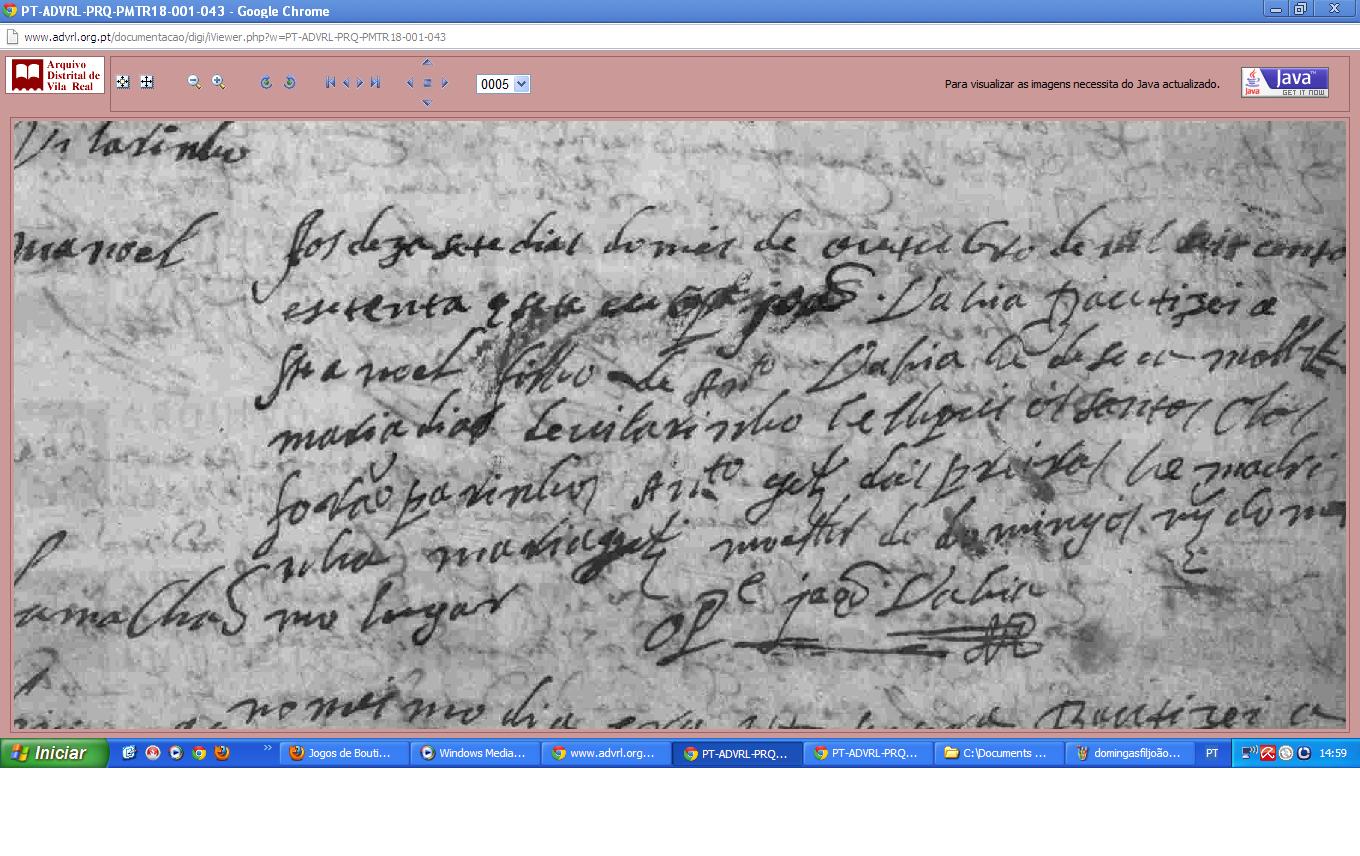 PT-ADVRL-PRQ-PMTR18-001-043 - Google Chrome
www.advrl.org.pt/documentacao/digi/iViewer.php?w=PT-ADVRL-PRQ-PMTR18-001-043
Arquivo
Distrital de
Vila Real
0005
Para visualizar as imagens necessita do Java actualizado.
Java
Java™
GET IT NOW
Vilarinho
manoel
Aos dezasete dias do mes de outubro de mil seis cento
esetenta e sete eu o pe joão Vahia Bautizei a
Manoel filho de Anto Vahia he de sua molher
maria dias de vilarinho os santos olos
forão padrinhos Anto glz das preiras he madri
nha maria glz molher de domingos do mes
mo lugar
oPe joão Vahia
no mesmo dia Bautizei a
Iniciar
Jogos de Bouti...
Windows Media...
www.advrl.org...
PT-ADVRL-PRQ...
PT-ADVRL-PRQ...
C:\Documents ...
domingasfiljoão...
PT
14:59